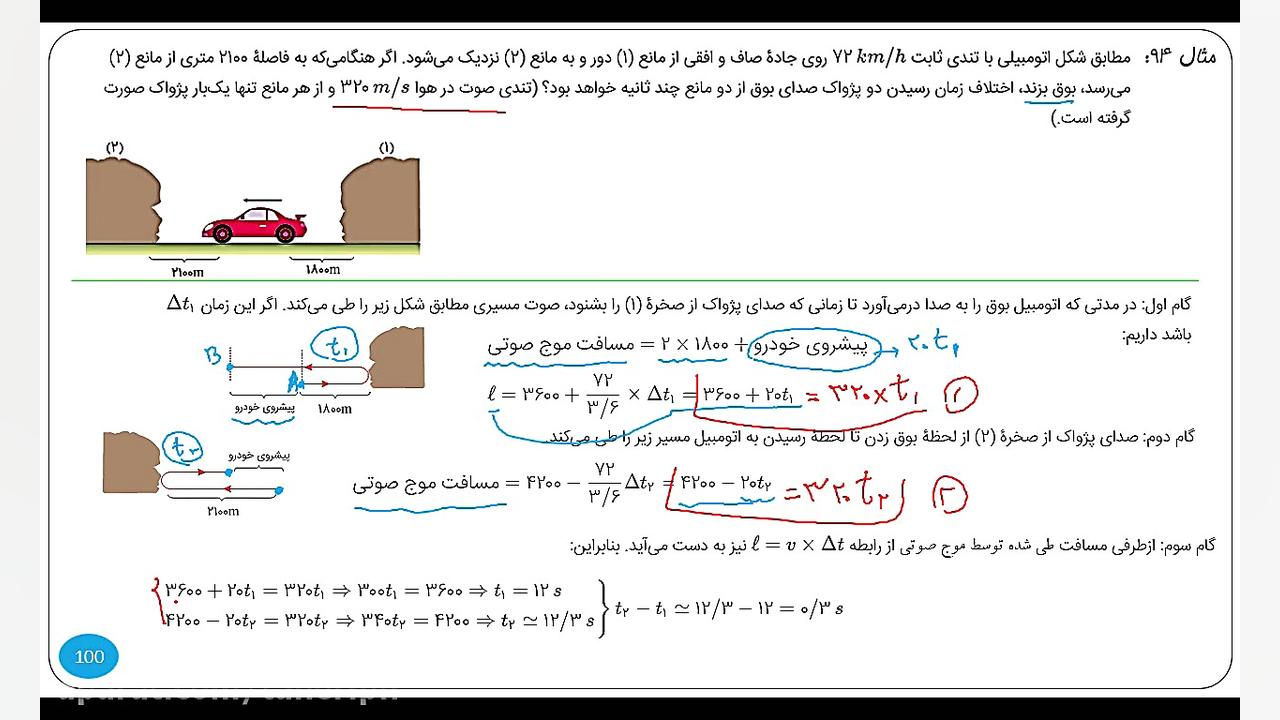 مثال ۹۴: مطابق شکل اتومبیلی با تندی ثابت ۷۲ km/h روی جادهٔ صاف و افقی از مانع (۱) دور و به مانع (۲) نزدیک می‌شود. اگر هنگامی‌که به فاصلهٔ ۲۱۰۰ متری از مانع (۲)
می‌رسد، بوق بزند، اختلاف زمان رسیدن دو پژواک صدای بوق از دو مانع چند ثانیه خواهد بود؟ (تندی صوت در هوا ۳۲۰ m/s و از هر مانع تنها یک‌بار پژواک صورت
گرفته است.)
(۲) (۱)
۲۱۰۰m ۱۸۰۰m
گام اول: در مدتی که اتومبیل بوق را به صدا درمی‌آورد تا زمانی که صدای پژواک از صخرهٔ (۱) را بشنود، صوت مسیری مطابق شکل زیر را طی می‌کند. اگر این زمان Δt₁
باشد داریم:
مسافت موج صوتی = ۲ × ۱۸۰۰ + پیشروی خودرو → ۲۰t₁
B t₁ A
پیشروی خودرو ۱۸۰۰m
ℓ = ۳۶۰۰ + ۷۲/۳/۶ × Δt₁ = ۳۶۰۰ + ۲۰t₁ = ۳۲۰×t₁ ①
گام دوم: صدای پژواک از صخرهٔ (۲) از لحظهٔ بوق زدن تا لحظهٔ رسیدن به اتومبیل مسیر زیر را طی می‌کند.
t₂ پیشروی خودرو
۲۱۰۰m
مسافت موج صوتی = ۴۲۰۰ − ۷۲/۳/۶ Δt₂ = ۴۲۰۰ − ۲۰t₂ = ۳۲۰t₂ ②
گام سوم: ازطرفی مسافت طی شده توسط موج صوتی از رابطه ℓ = v × Δt نیز به دست می‌آید. بنابراین:
۳۶۰۰ + ۲۰t₁ = ۳۲۰t₁ ⇒ ۳۰۰t₁ = ۳۶۰۰ ⇒ t₁ = ۱۲ s
۴۲۰۰ − ۲۰t₂ = ۳۲۰t₂ ⇒ ۳۴۰t₂ = ۴۲۰۰ ⇒ t₂ ≃ ۱۲/۳ s
t₂ − t₁ ≃ ۱۲/۳ − ۱۲ = ۰/۳ s
100